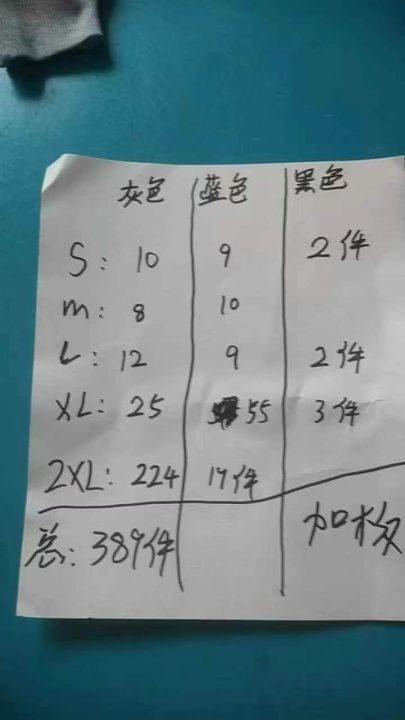 灰色 蓝色 黑色
S: 10 9 2件
m: 8 10
L: 12 9 2件
XL: 25 55 3件
2XL: 224 17件
总: 389件